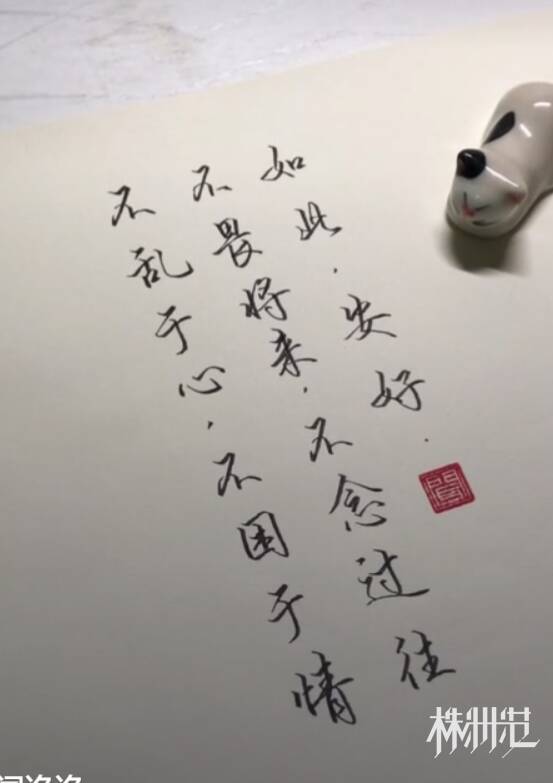 不乱于心,不困于情
不畏将来,不念过往
如此,安好.
株洲范